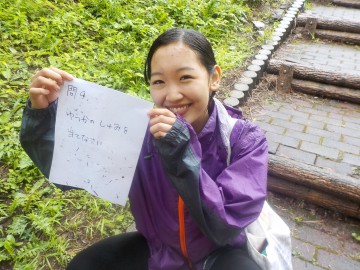 問4.
ゆうかのしゅみを
当てなさい